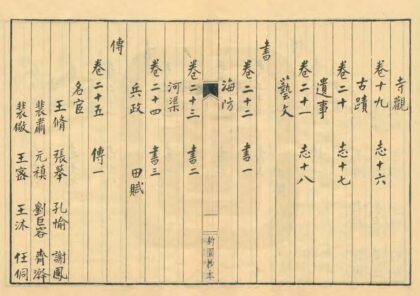 寺觀
卷十九 志十六
古蹟
卷二十 志十七
遺事
卷二十一 志十八
藝文
書
卷二十二 書一
海防
卷二十三 書二
河渠
卷二十四 書三
兵政 田賦
傳
卷二十五 傳一
名宦
王脩 張舉 孔愉 謝鳳
裴肅 元稹 劉巨容 齊澣
裴儆 王密 王沐 任侗
約園抄本